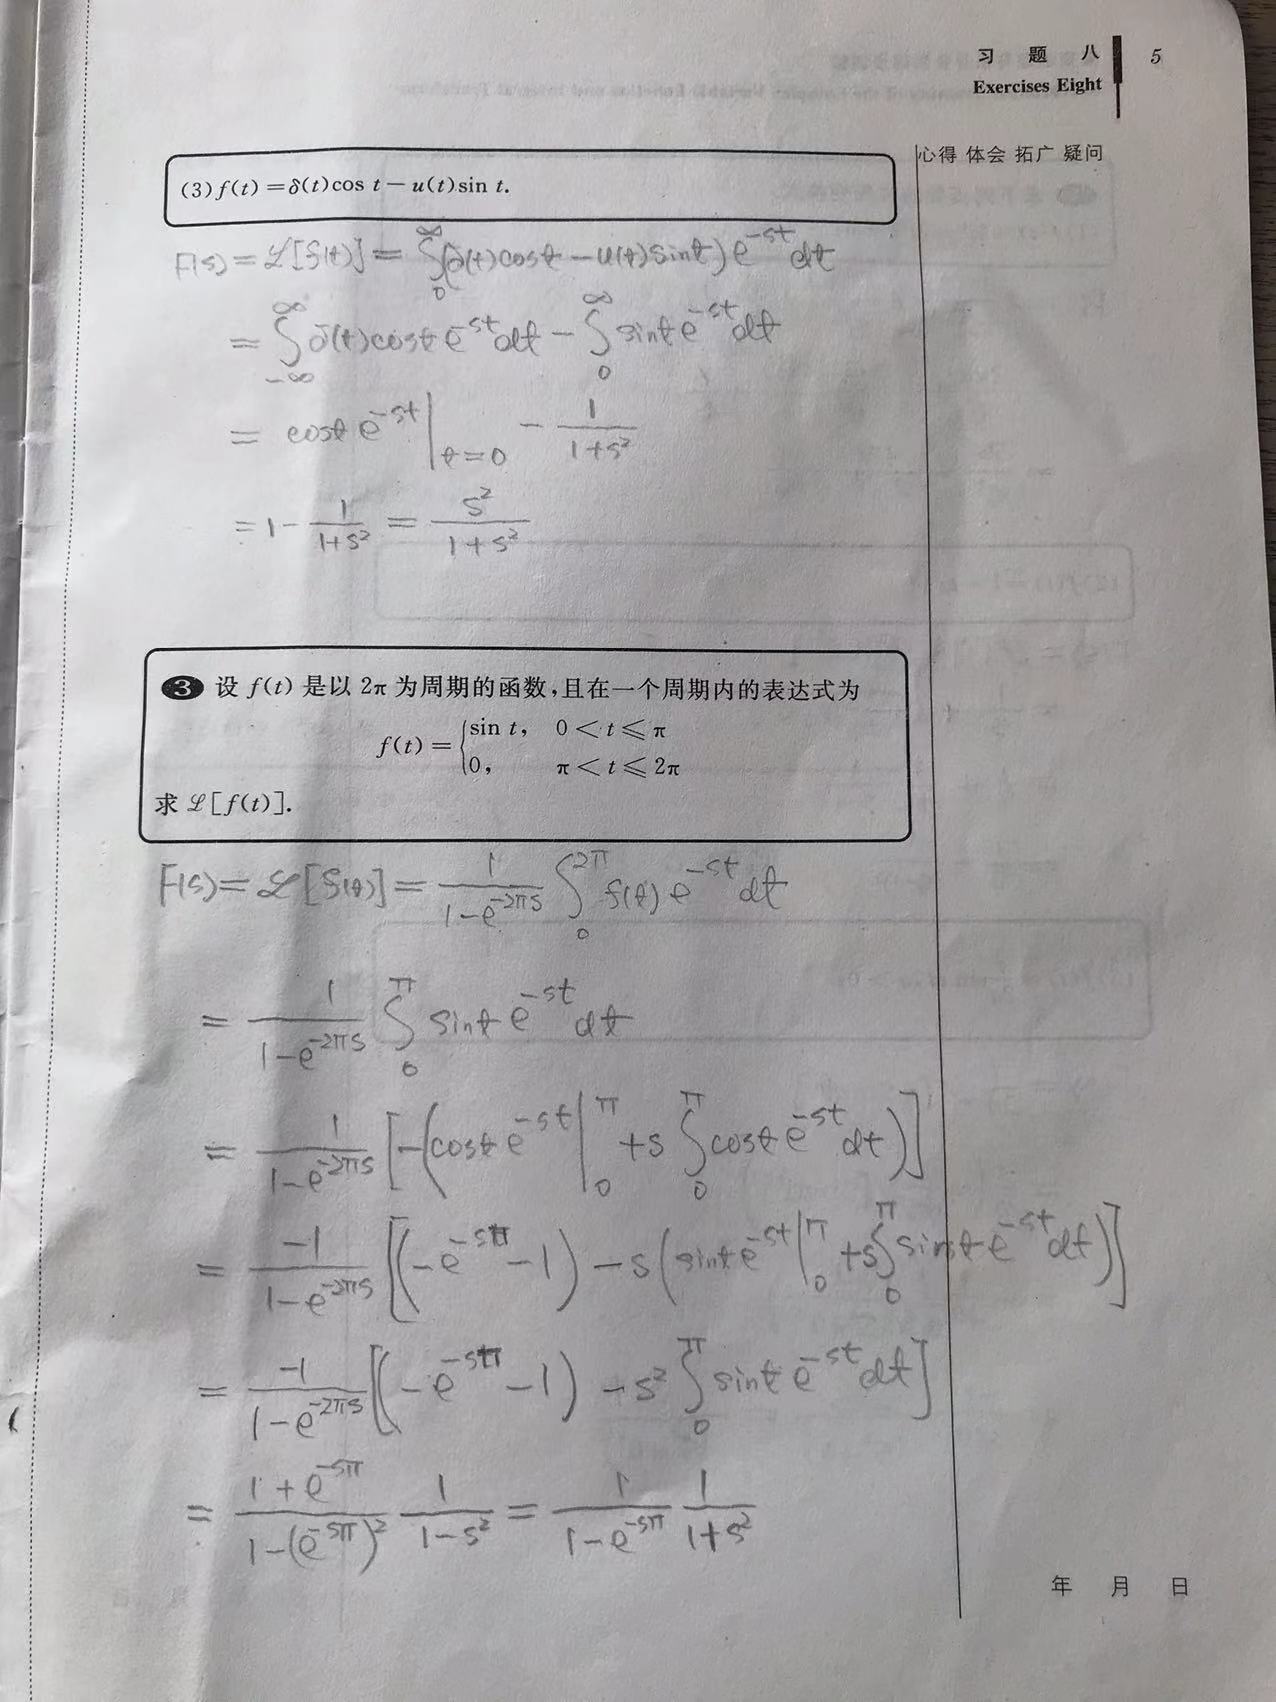 习 题 八 5
Exercises Eight
心得 体会 拓广 疑问
(3) f(t)=δ(t)cos t－u(t)sin t.
F(s) = ℒ[f(t)] = ∫₀^∞ (δ(t)cost − u(t)sint) e^{-st} dt
= ∫_{-∞}^{∞} δ(t)cost e^{-st} dt − ∫₀^∞ sint e^{-st} dt
= cost e^{-st} |_{t=0} − 1/(1+s²)
= 1 − 1/(1+s²) = s²/(1+s²)
3 设 f(t) 是以 2π 为周期的函数,且在一个周期内的表达式为
f(t)= { sin t, 0＜t⩽π
0, π＜t⩽2π
求 ℒ[f(t)].
F(s) = ℒ[f(t)] = 1/(1−e^{-2πs}) ∫₀^{2π} f(t) e^{-st} dt
= 1/(1−e^{-2πs}) ∫₀^π sint e^{-st} dt
= 1/(1−e^{-2πs}) [−(cost e^{-st} |₀^π + s ∫₀^π cost e^{-st} dt)]
= −1/(1−e^{-2πs}) [(−e^{-sπ} −1) − s (sint e^{-st} |₀^π + s∫₀^π sint e^{-st} dt)]
= −1/(1−e^{-2πs}) [(−e^{-sπ} −1) − s² ∫₀^π sint e^{-st} dt]
= (1+e^{-sπ})/(1−(e^{-sπ})²) 1/(1−s²) = 1/(1−e^{-sπ}) 1/(1+s²)
年 月 日